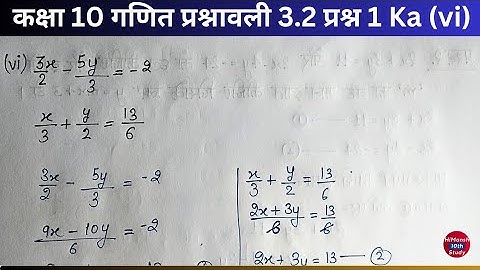 कक्षा 10 गणित प्रश्नावली 3.2 प्रश्न 1 Ka (vi)
(vi) 3x/2 - 5y/3 = -2
x/3 + y/2 = 13/6
3x/2 - 5y/3 = -2
9x - 10y/6 = -2
x/3 + y/2 = 13/6
2x + 3y/6 = 13/6
2x + 3y = 13 — ②
HiMansh
10th
Study